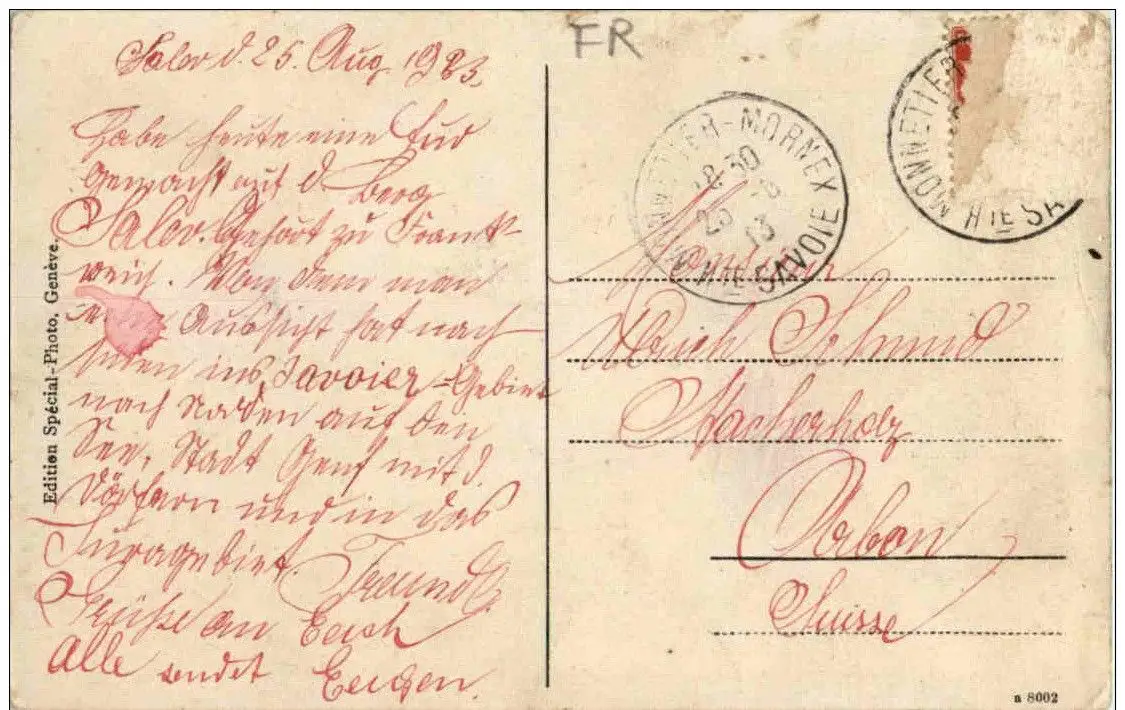 FR
d. 25. Aug. 1923.
Habe heute eine Tur
gemacht auf d. Berg
Salev. Gehört zu Frank-
reich. Von dem man
Aussicht hat nach
ins Savoier-Gebiet
nach Norden auf den
See, Stadt Genf mit d.
Dörfern und in das
Juragebiet. Freundl.
Grüße an Euch
Alle sendet Eugen.
Edition Spécial-Photo, Genève.
MONNETIER-MORNEX
18 30
25 -8
HTE SAVOIE
MONNETIER
HTE SA
Monsieur
Schmid
Stacherholz
Arbon
Suisse
a 8002